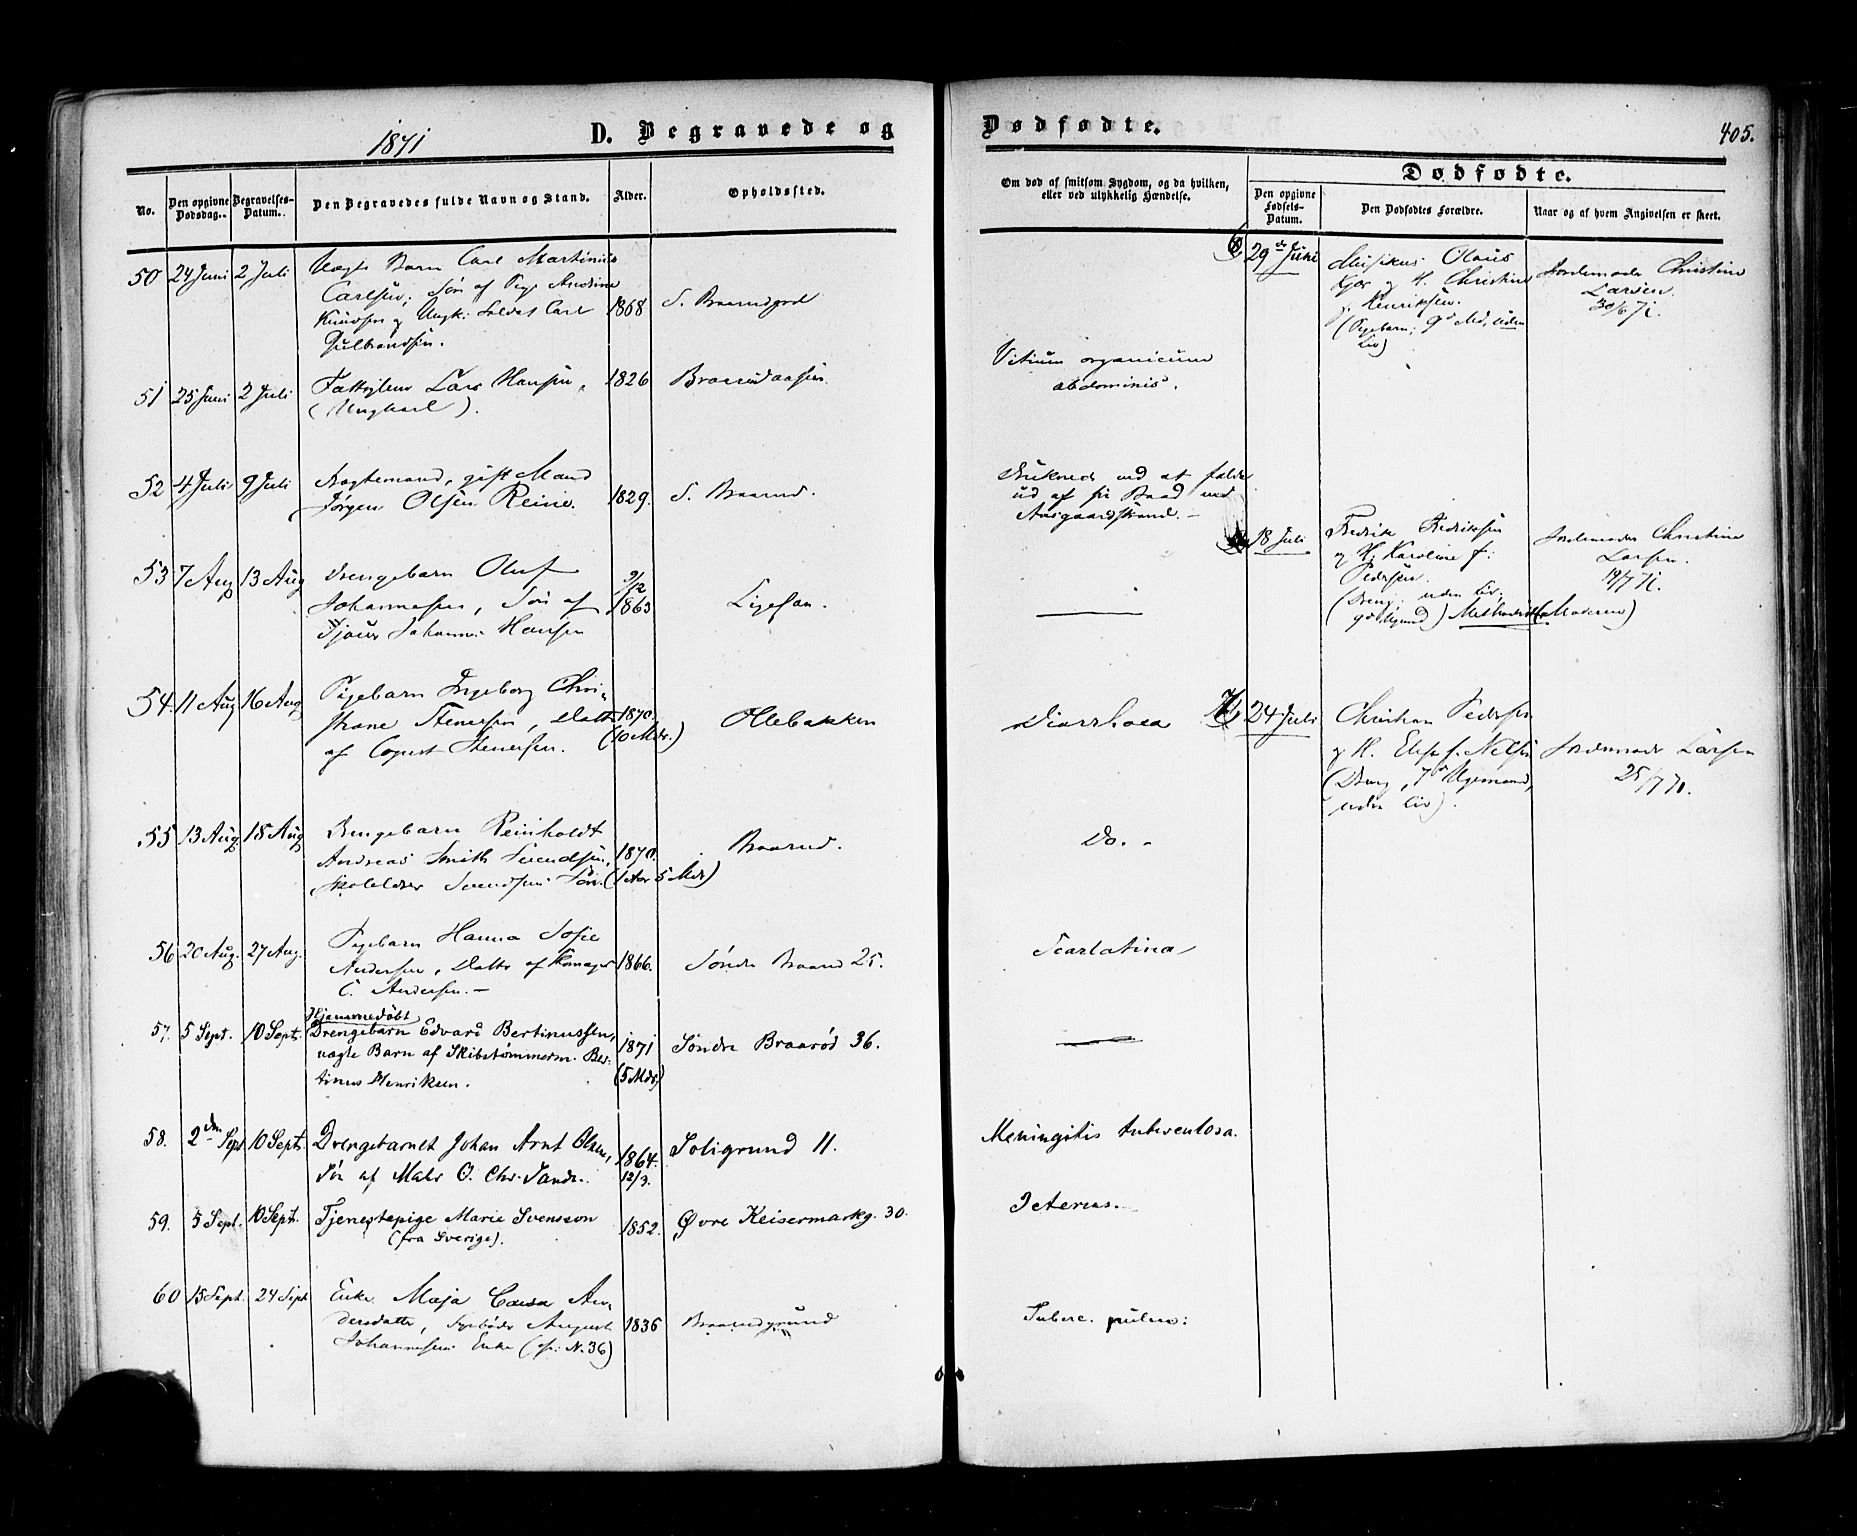 1871
D. Begravede og
Dødfødte.
405.
No.
Den opgivne Dødsdag.
Begravelses-Datum.
Den Begravedes fulde Navn og Stand.
Alder.
Opholdssted.
Om død af smitsom Sygdom, og da hvilken,
eller ved ulykkelig Hændelse.
Dødfødte.
Den opgivne Fødsels-Datum.
Den Dødfødtes Forældre.
Naar og af hvem Angivelsen er skeet.
50 24 Juni 2 Juli Uægte Barn Carl Martinius
Carlsen, Søn af Pige Andrine
Knudsen og Ungk: Soldat Carl 1868
Gulbrandsen.
51 25 Juni 2 Juli Fattiglem Lars Hansen, 1826
(Ungkarl).
Vitium organicum
abdominis.
52 4 Juli 9 Juli gift Mand
Jørgen Olsen Reine. 1829. S. Braarud.
Druknet ved at falde
ud af sin Baad ved
Aasgaardstrand. –
53 7 Aug 13 Aug Drengebarn Oluf
Johannessen, Søn af 9/12 1863
Johannes Hansen
54. 11 Aug 16 Aug Pigebarn Ingeborg Chri-
stiane Stenersen, Datter 1870. (10 Mdr.) Ollebakken
af Stenersen.
Diarrhoea
55 13 Aug 18 Aug Drengebarn Reinholdt
Andreas Smith Svendsen, 1870. Braarud.
Svendsens Søn. (1 Aar 5 Mdr)
Do. -
56 20 Aug. 27 Aug. Pigebarn Hanna Sofie
Andersen, Datter af 1866. Søndre Braarud 25.
C. Andersen. –
Scarlatina
Hjemmedøbt
57. 5 Sept. 10 Sept. Drengebarn Edvard Bertinussen,
uægte Barn af Skibstømmerm. Ber- 1871 Søndre Braarød 36.
tinus Henriksen. (5 Mdr)
58. 2den Sept 10 Sept. Drengebarnet Johan Arnt Olsen, 1864. Soligrund 11.
Søn af Maler O. Chr. Sande. 12/3.
Meningitis tuberculosa.
59. 5 Sept. 10 Sept. Tjenestepige Marie Svensson 1852. Øvre Keisermarkg. 30.
(fra Sverige).
Icterus.
60 15 Sept. 24 Sept Enke Maja Caisa An-
dersdatter, August 1836 Braarudgrund
Johannesens Enke (N. 36)
Tuberc. pulm:
6 29de Juni Musikus Olaus
Kjær og H. Christine
f. Henriksen.
(Pigebarn; 9de Md, uden
Liv)
Jordemoder Christine
Larsen.
30/6 71.
18 Juli Fredrik Fredriksen
og H. Karoline f:
Pedersen.
(Dreng, uden Liv,
Methodist (Moderen)
Jordemoder Christine
Larsen.
19/7 71.
24 Juli Christian Pedersen
og H. Elise f. Nilsen
(Dreng, Ugemaaned,
uden Liv).
Jordemoder Larsen
25/7 71.